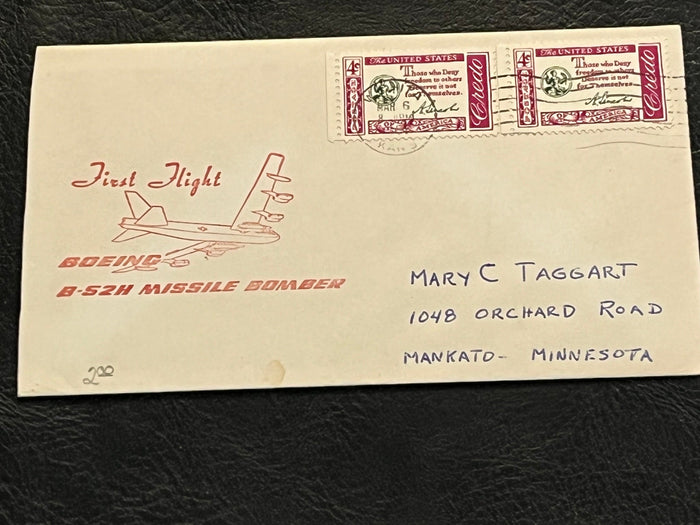 4¢ The UNITED STATES
Those who Deny
freedom to others
Deserve it not
for Themselves.
A. Lincoln
Credo
OF AMERICA
4¢ The UNITED STATES
Those who Deny
freedom to others
Deserve it not
for Themselves.
A. Lincoln
Credo
OF AMERICA
MAR 6
KANS
First Flight
BOEING
B-52H MISSILE BOMBER
MARY C TAGGART
1048 ORCHARD ROAD
MANKATO - MINNESOTA
2.00